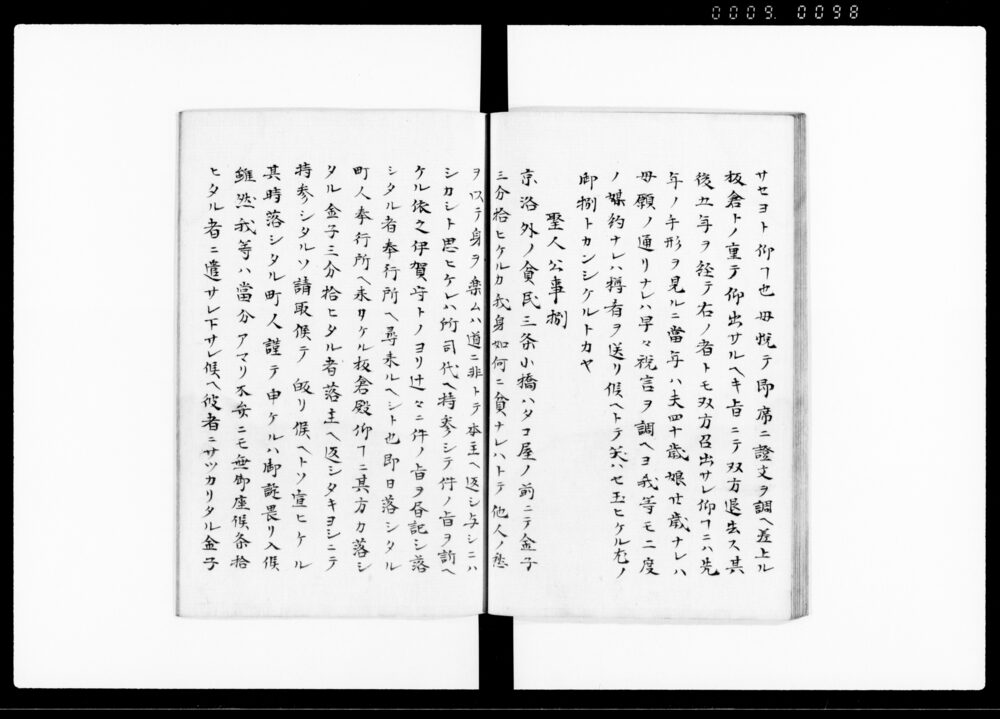 0009. 0098
サセヨト仰ヿ也母悦テ即席ニ證文ヲ調ヘ差上ル
板倉トノ重テ仰出サルヘキ旨ニテ双方退出ス其
後五年ヲ経テ右ノ者トモ双方召出サレ仰ヿニハ先
年ノ手形ヲ見ルニ當年ハ夫四十歳娘廿歳ナレハ
母願ノ通リナレハ早々祝言ヲ調ヘヨ我等モ二度
ノ媒約ナレハ樽肴ヲ送リ候ヘトテ笑ハセ玉ヒケル尤ノ
御捌トカンシケルトカヤ
聖人公事捌
京洛外ノ貧民三条小橋ハタコ屋ノ前ニテ金子
三分拾ヒケルカ我身如何ニ貧ナレハトテ他人ノ愁
ヲ以テ身ヲ楽ムハ道ニ非トテ本主ヘ返シ与シニハ
シカシト思ヒケレハ所司代ヘ持参シテ件ノ旨ヲ訴ヘ
ケル依之伊賀守トノヨリ辻々ニ件ノ旨ヲ書記シ落
シタル者奉行所ヘ尋来ルヘシト也即日落シタル
町人奉行所ヘ来リケル板倉殿仰ヿニ其方カ落シ
タル金子三分拾ヒタル者落主ヘ返シタキヨシニテ
持参シタルソ請取候テ 皈リ候ヘトソ宣ヒケル
其時落シタル町人謹テ申ケルハ御詑畏リ入候
雖然我等ハ當分アマリ不安ニモ無御座候条拾
ヒタル者ニ遣サレ下サレ候ヘ彼者ニサツカリタル金子